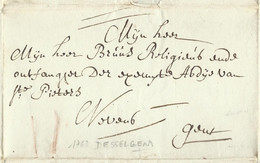 Mijn heer
Mijn heer Bruüs Religieus ende
ontfanger der exempte Abdije van
Ste Pieters
Nevens
Gent
DESSELGEM